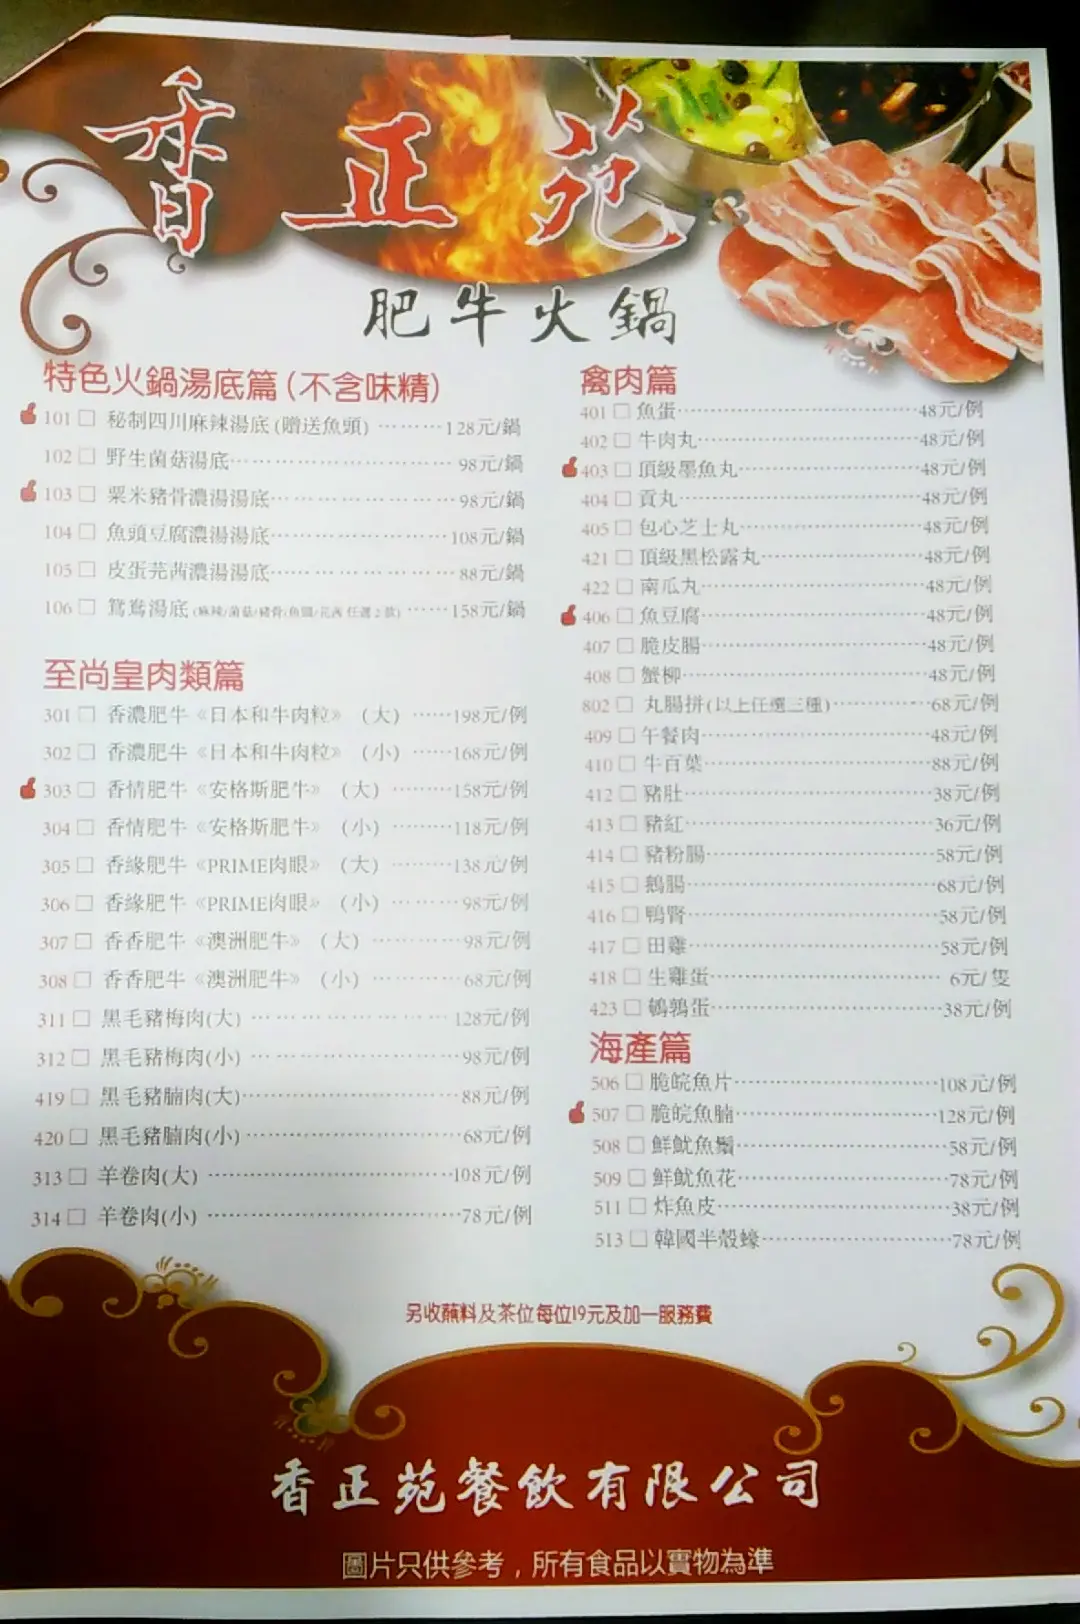 香正苑
肥牛火鍋
特色火鍋湯底篇(不含味精)
101 □ 秘制四川麻辣湯底(贈送魚頭) ……… 128元/鍋
102 □ 野生菌菇湯底……………………… 98元/鍋
103 □ 粟米豬骨濃湯湯底………………… 98元/鍋
104 □ 魚頭豆腐濃湯湯底………………… 108元/鍋
105 □ 皮蛋芫茜濃湯湯底………………… 88元/鍋
106 □ 鴛鴦湯底(麻辣/菌菇/豬骨/魚頭/芫茜 任選2款) …… 158元/鍋
至尚皇肉類篇
301 □ 香濃肥牛《日本和牛肉粒》(大) …… 198元/例
302 □ 香濃肥牛《日本和牛肉粒》(小) …… 168元/例
303 □ 香情肥牛《安格斯肥牛》(大) ……… 158元/例
304 □ 香情肥牛《安格斯肥牛》(小) ……… 118元/例
305 □ 香緣肥牛《PRIME肉眼》(大) ……… 138元/例
306 □ 香緣肥牛《PRIME肉眼》(小) ……… 98元/例
307 □ 香香肥牛《澳洲肥牛》(大) ………… 98元/例
308 □ 香香肥牛《澳洲肥牛》(小) ………… 68元/例
311 □ 黑毛豬梅肉(大) …………………… 128元/例
312 □ 黑毛豬梅肉(小) …………………… 98元/例
419 □ 黑毛豬腩肉(大)…………………… 88元/例
420 □ 黑毛豬腩肉(小)…………………… 68元/例
313 □ 羊卷肉(大) ………………………… 108元/例
314 □ 羊卷肉(小) ………………………… 78元/例
禽肉篇
401 □ 魚蛋………………………… 48元/例
402 □ 牛肉丸……………………… 48元/例
403 □ 頂級墨魚丸………………… 48元/例
404 □ 貢丸………………………… 48元/例
405 □ 包心芝士丸………………… 48元/例
421 □ 頂級黑松露丸……………… 48元/例
422 □ 南瓜丸……………………… 48元/例
406 □ 魚豆腐……………………… 48元/例
407 □ 脆皮腸……………………… 48元/例
408 □ 蟹柳………………………… 48元/例
802 □ 丸腸拼(以上任選三種)………… 68元/例
409 □ 午餐肉……………………… 48元/例
410 □ 牛百葉……………………… 88元/例
412 □ 豬肚………………………… 38元/例
413 □ 豬紅………………………… 36元/例
414 □ 豬粉腸……………………… 58元/例
415 □ 鵝腸………………………… 68元/例
416 □ 鴨腎………………………… 58元/例
417 □ 田雞………………………… 58元/例
418 □ 生雞蛋……………………… 6元/隻
423 □ 鵪鶉蛋……………………… 38元/例
海產篇
506 □ 脆皖魚片…………………… 108元/例
507 □ 脆皖魚腩…………………… 128元/例
508 □ 鮮魷魚鬚…………………… 58元/例
509 □ 鮮魷魚花…………………… 78元/例
511 □ 炸魚皮……………………… 38元/例
513 □ 韓國半殼蠔………………… 78元/例
另收蘸料及茶位每位19元及加一服務費
香正苑餐飲有限公司
圖片只供參考，所有食品以實物為準